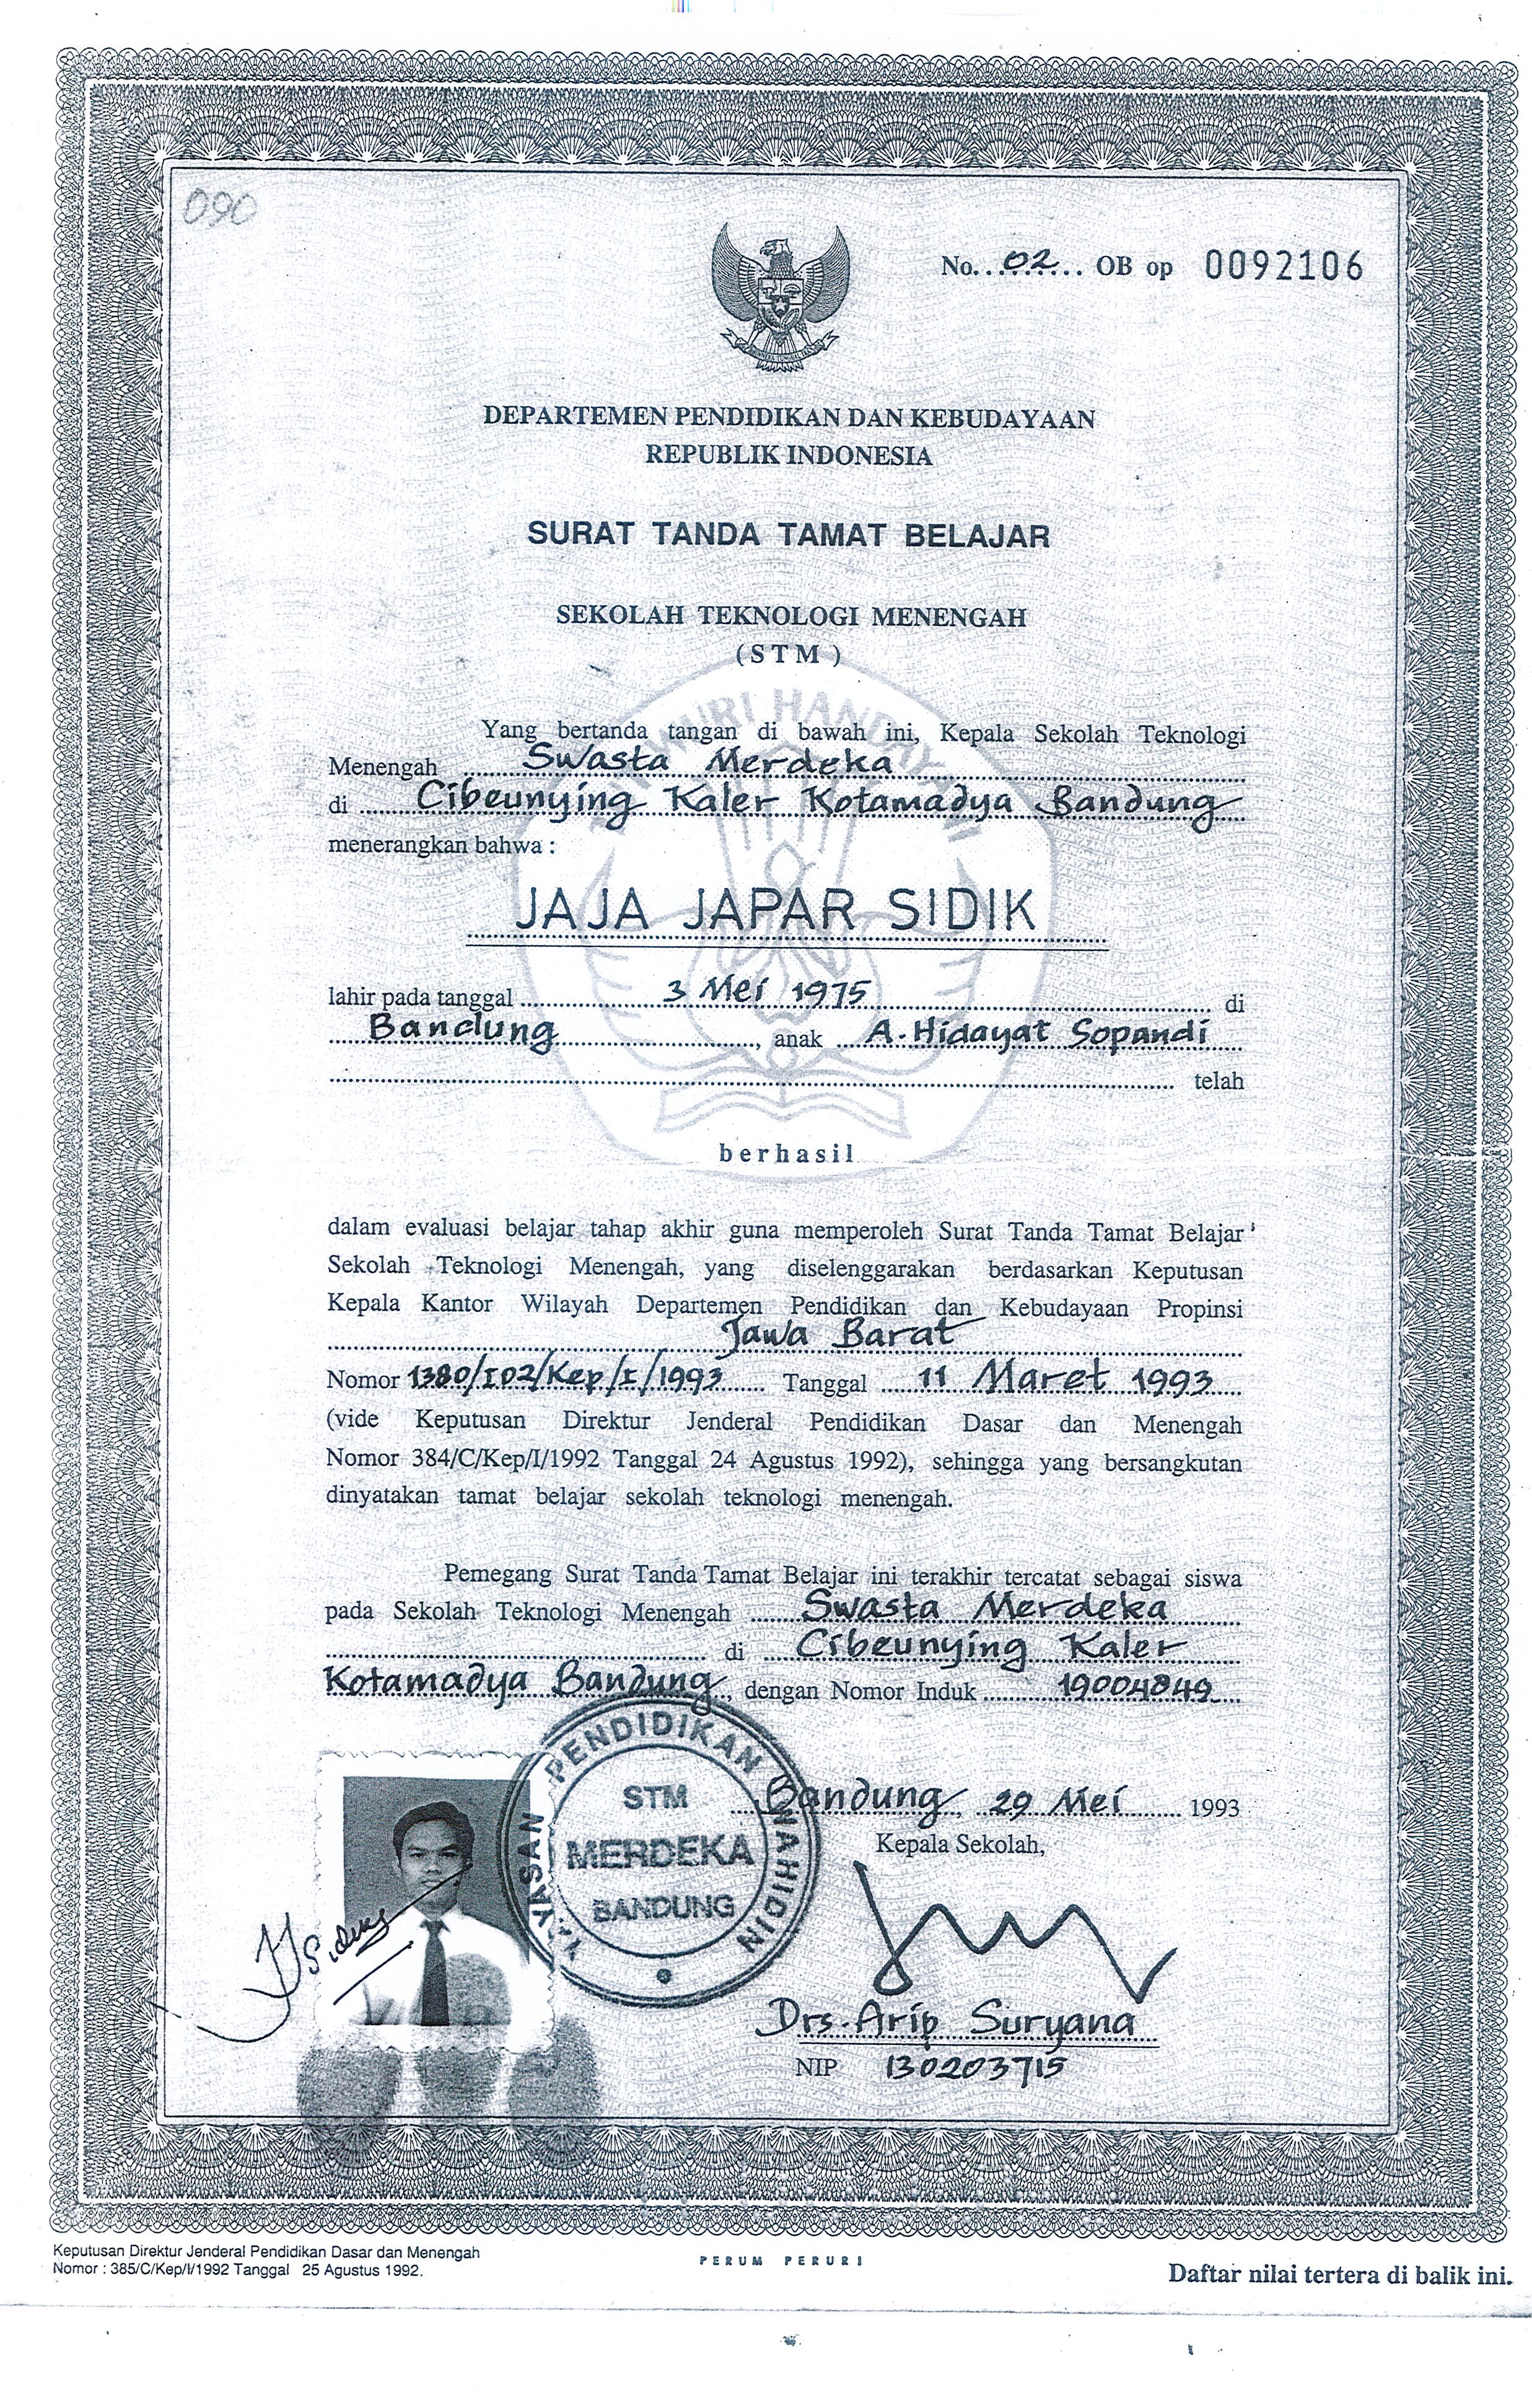 090
No. 02 OB op 0092106
DEPARTEMEN PENDIDIKAN DAN KEBUDAYAAN
REPUBLIK INDONESIA
SURAT TANDA TAMAT BELAJAR
SEKOLAH TEKNOLOGI MENENGAH
(STM)
Yang bertanda tangan di bawah ini, Kepala Sekolah Teknologi
Menengah Swasta Merdeka
di Cibeunying Kaler Kotamadya Bandung
menerangkan bahwa :
JAJA JAPAR SIDIK
lahir pada tanggal 3 Mei 1975 di
Bandung, anak A. Hidayat Sopandi
telah
berhasil
dalam evaluasi belajar tahap akhir guna memperoleh Surat Tanda Tamat Belajar
Sekolah Teknologi Menengah, yang diselenggarakan berdasarkan Keputusan
Kepala Kantor Wilayah Departemen Pendidikan dan Kebudayaan Propinsi
Jawa Barat
Nomor 1380/I02/Kep/I/1993 Tanggal 11 Maret 1993
(vide Keputusan Direktur Jenderal Pendidikan Dasar dan Menengah
Nomor 384/C/Kep/I/1992 Tanggal 24 Agustus 1992), sehingga yang bersangkutan
dinyatakan tamat belajar sekolah teknologi menengah.
Pemegang Surat Tanda Tamat Belajar ini terakhir tercatat sebagai siswa
pada Sekolah Teknologi Menengah Swasta Merdeka
di Cibeunying Kaler
Kotamadya Bandung, dengan Nomor Induk 19004849
YAYASAN PENDIDIKAN WAHIDIN
STM
MERDEKA
BANDUNG
Bandung, 29 Mei 1993
Kepala Sekolah,
Drs. Arip Suryana
NIP 130203715
Keputusan Direktur Jenderal Pendidikan Dasar dan Menengah
Nomor : 385/C/Kep/I/1992 Tanggal 25 Agustus 1992.
PERUM PERURI
Daftar nilai tertera di balik ini.